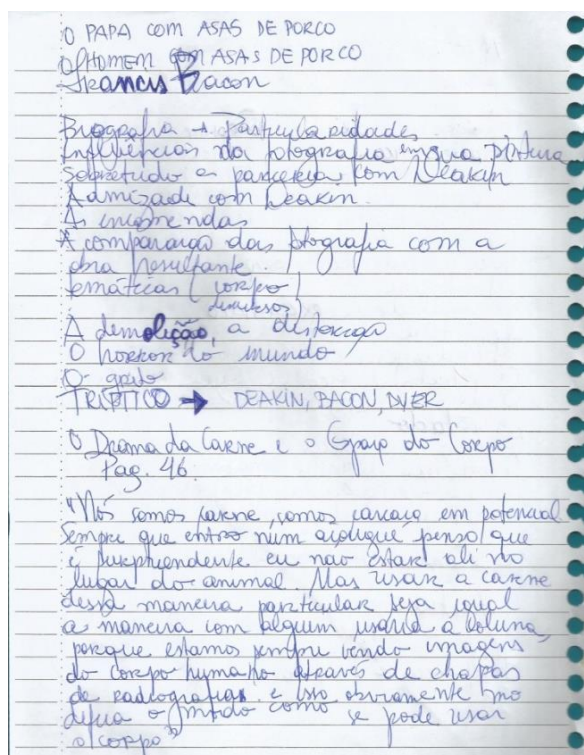 O PAPA COM ASAS DE PORCO
O HOMEM COM ASAS DE PORCO
Francis Bacon
Biografia + Particularidades
Influências da fotografia em sua pintura
sobretudo a parceria com Deakin
A amizade com Deakin.
As encomendas
A comparação das fotografia com a
obra resultante.
temáticas (corpo
diversos)
A demolição, a distorção
O horror do mundo
O grito
TRIPTICO → DEAKIN, BACON, DYER
O Drama da Carne e o Espaço do Corpo
Pag. 46.
"Nós somos carne, somos carcaça em potencial
Sempre que entro num açougue penso que
é surpreendente eu não estar ali no
lugar do animal. Mas usar a carne
dessa maneira particular seja igual
a maneira com alguém usaria a coluna,
porque estamos sempre vendo imagens
do corpo humano através de chapas
de radiografias e isso obviamente mo
difica o modo como se pode usar
o corpo"